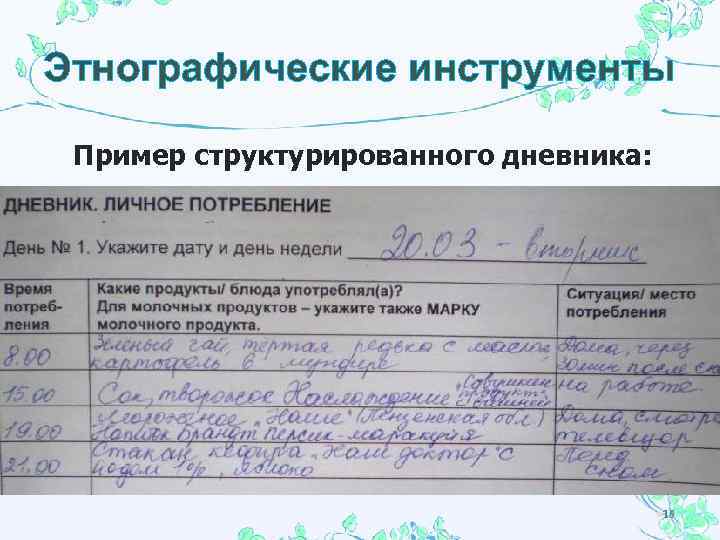 Этнографические инструменты
Пример структурированного дневника:
ДНЕВНИК. ЛИЧНОЕ ПОТРЕБЛЕНИЕ
День № 1. Укажите дату и день недели 20.03 - вторник
Время потреб-ления
Какие продукты/ блюда употреблял(а)?
Для молочных продуктов – укажите также МАРКУ
молочного продукта.
Ситуация/ место
потребления
8.00
Зеленый чай, тертая редька с маслом
картофель в мундире
Дома, через
30мин после сна
15.00
Сок, творожок Наслаждение
на работе
19.00
Мороженое "Наше" (Пензенская обл)
Напиток Брандт персик-маракуйя
Дома, смотря
телевизор
21.00
Стакан кефира "Наш доктор" с
йодом 1%, яблоко
Перед
сном